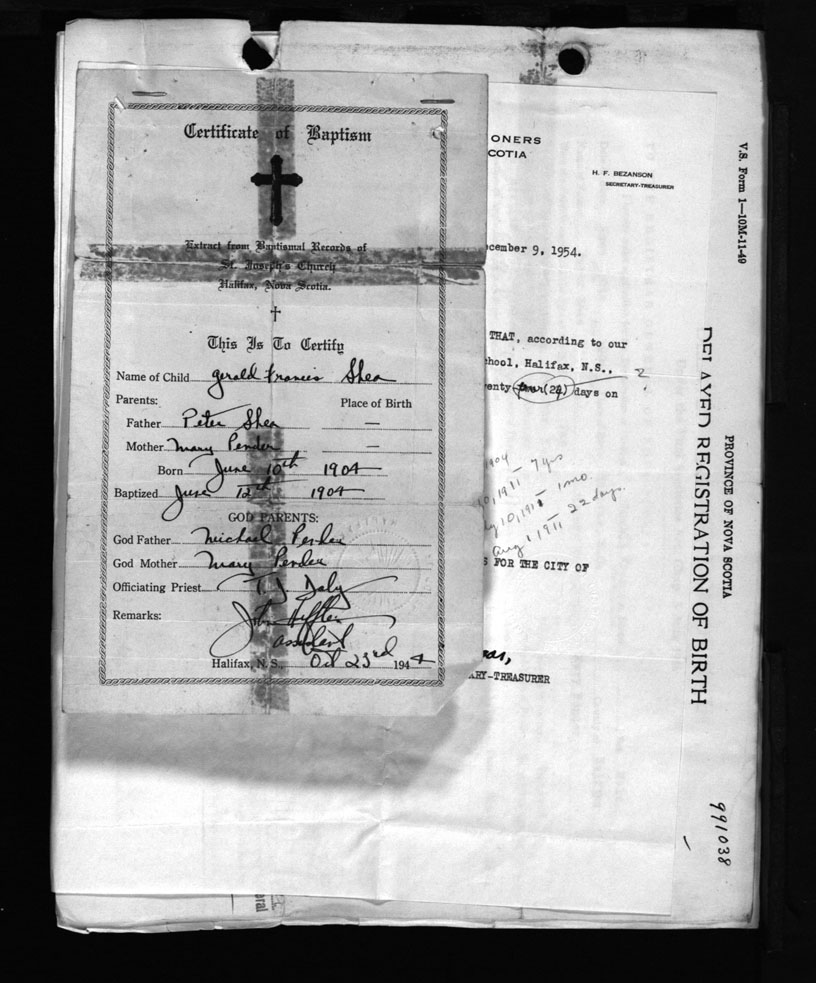 Certificate of Baptism
Extract from Baptismal Records of
St. Joseph's Church
Halifax, Nova Scotia.
This Is To Certify
Name of Child Gerald Francis Shea
Parents: Place of Birth
Father Peter Shea —
Mother Mary Pender —
Born June 10th 1904
Baptized June 12th 1904
GOD PARENTS:
God Father Michael Pender
God Mother Mary Pender
Officiating Priest T J Daly
Remarks:
John
assistant
Halifax, N. S., Oct 23rd 1944
ONERS
COTIA
H. F. BEZANSON
SECRETARY-TREASURER
cember 9, 1954.
THAT, according to our
chool, Halifax, N.S.,
enty four (24) days on
2
1904
10, 1911 - 7 yrs
y 10, 1911 - 1 mo.
Aug 1, 1911 22 days.
S FOR THE CITY OF
ARY-TREASURER
V.S. Form 1—10M-11-49
PROVINCE OF NOVA SCOTIA
DELAYED REGISTRATION OF BIRTH
991038